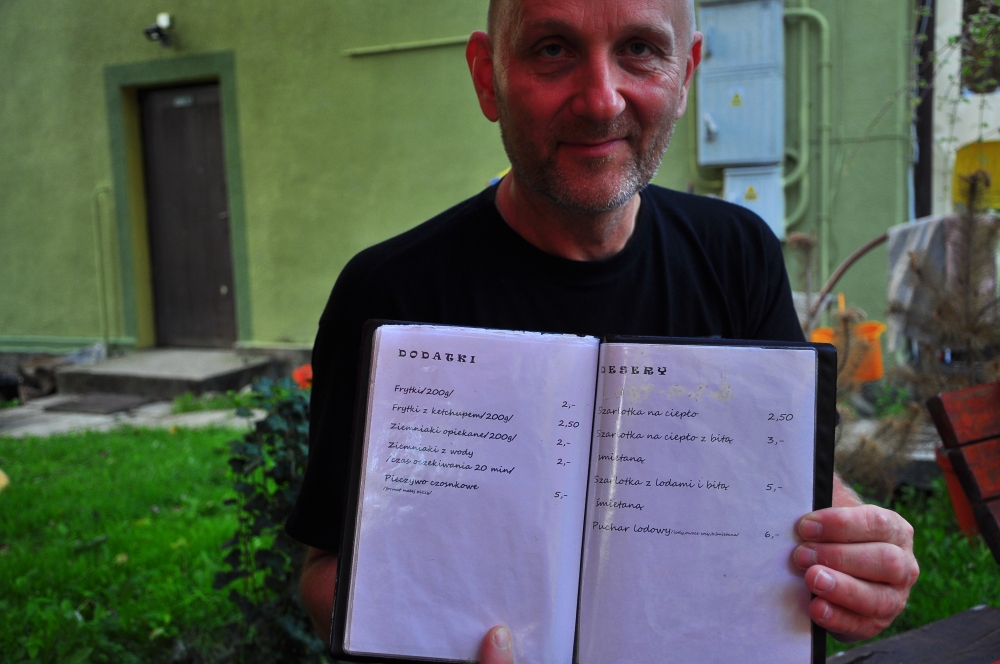 DODATKI
Frytki/200g/ 2,-
Frytki z ketchupem/200g/ 2,50
Ziemniaki opiekane/200g/ 2,-
Ziemniaki z wody
/czas oczekiwania 20 min/ 2,-
Pieczywo czosnkowe 5,-
DESERY
Szarlotka na ciepło 2,50
Szarlotka na ciepło z bitą 3,-
śmietaną
Szarlotka z lodami i bitą 5,-
śmietaną
Puchar lodowy 6,-